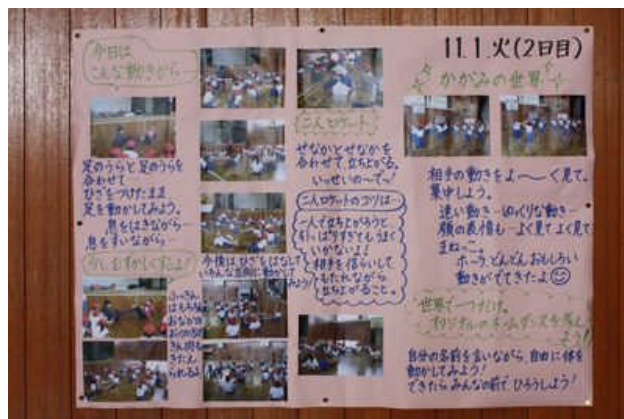 今日は
こんな動きから…
足のうらと足のうらを
合わせて
ひざをつけたまま
足を動かしてみよう。
息をはきながら…
息をすいながら…
少しむずかしくするよ!
今度は ひざをはなして
いろんな方向に動かして
みよう!
二人ロケット
せなかとせなかを
合わせて立ち上がる。
いっせいの〜でっ!
二人ロケットのコツは…
二人で立ち上がろうと
引っぱりすぎてもうまく
いかないよ!
相手を信らいして
もたれながら
立ち上がること。
11.1.火(2日目)
かがみの世界
相手の動きをよ〜〜く見て。
集中しよう。
速い動き…ゆっくりな動き…
顔の表情も…よく見てよく見て
まねっこ。
ホーラ、どんどんおもしろい
動きがでてきたよ
世界で一つだけ。
オリジナルのネームダンスを考え
よう!
自分の名前を言いながら、自由に体を
動かしてみよう!
できたら みんなの前で ひろうしよう!